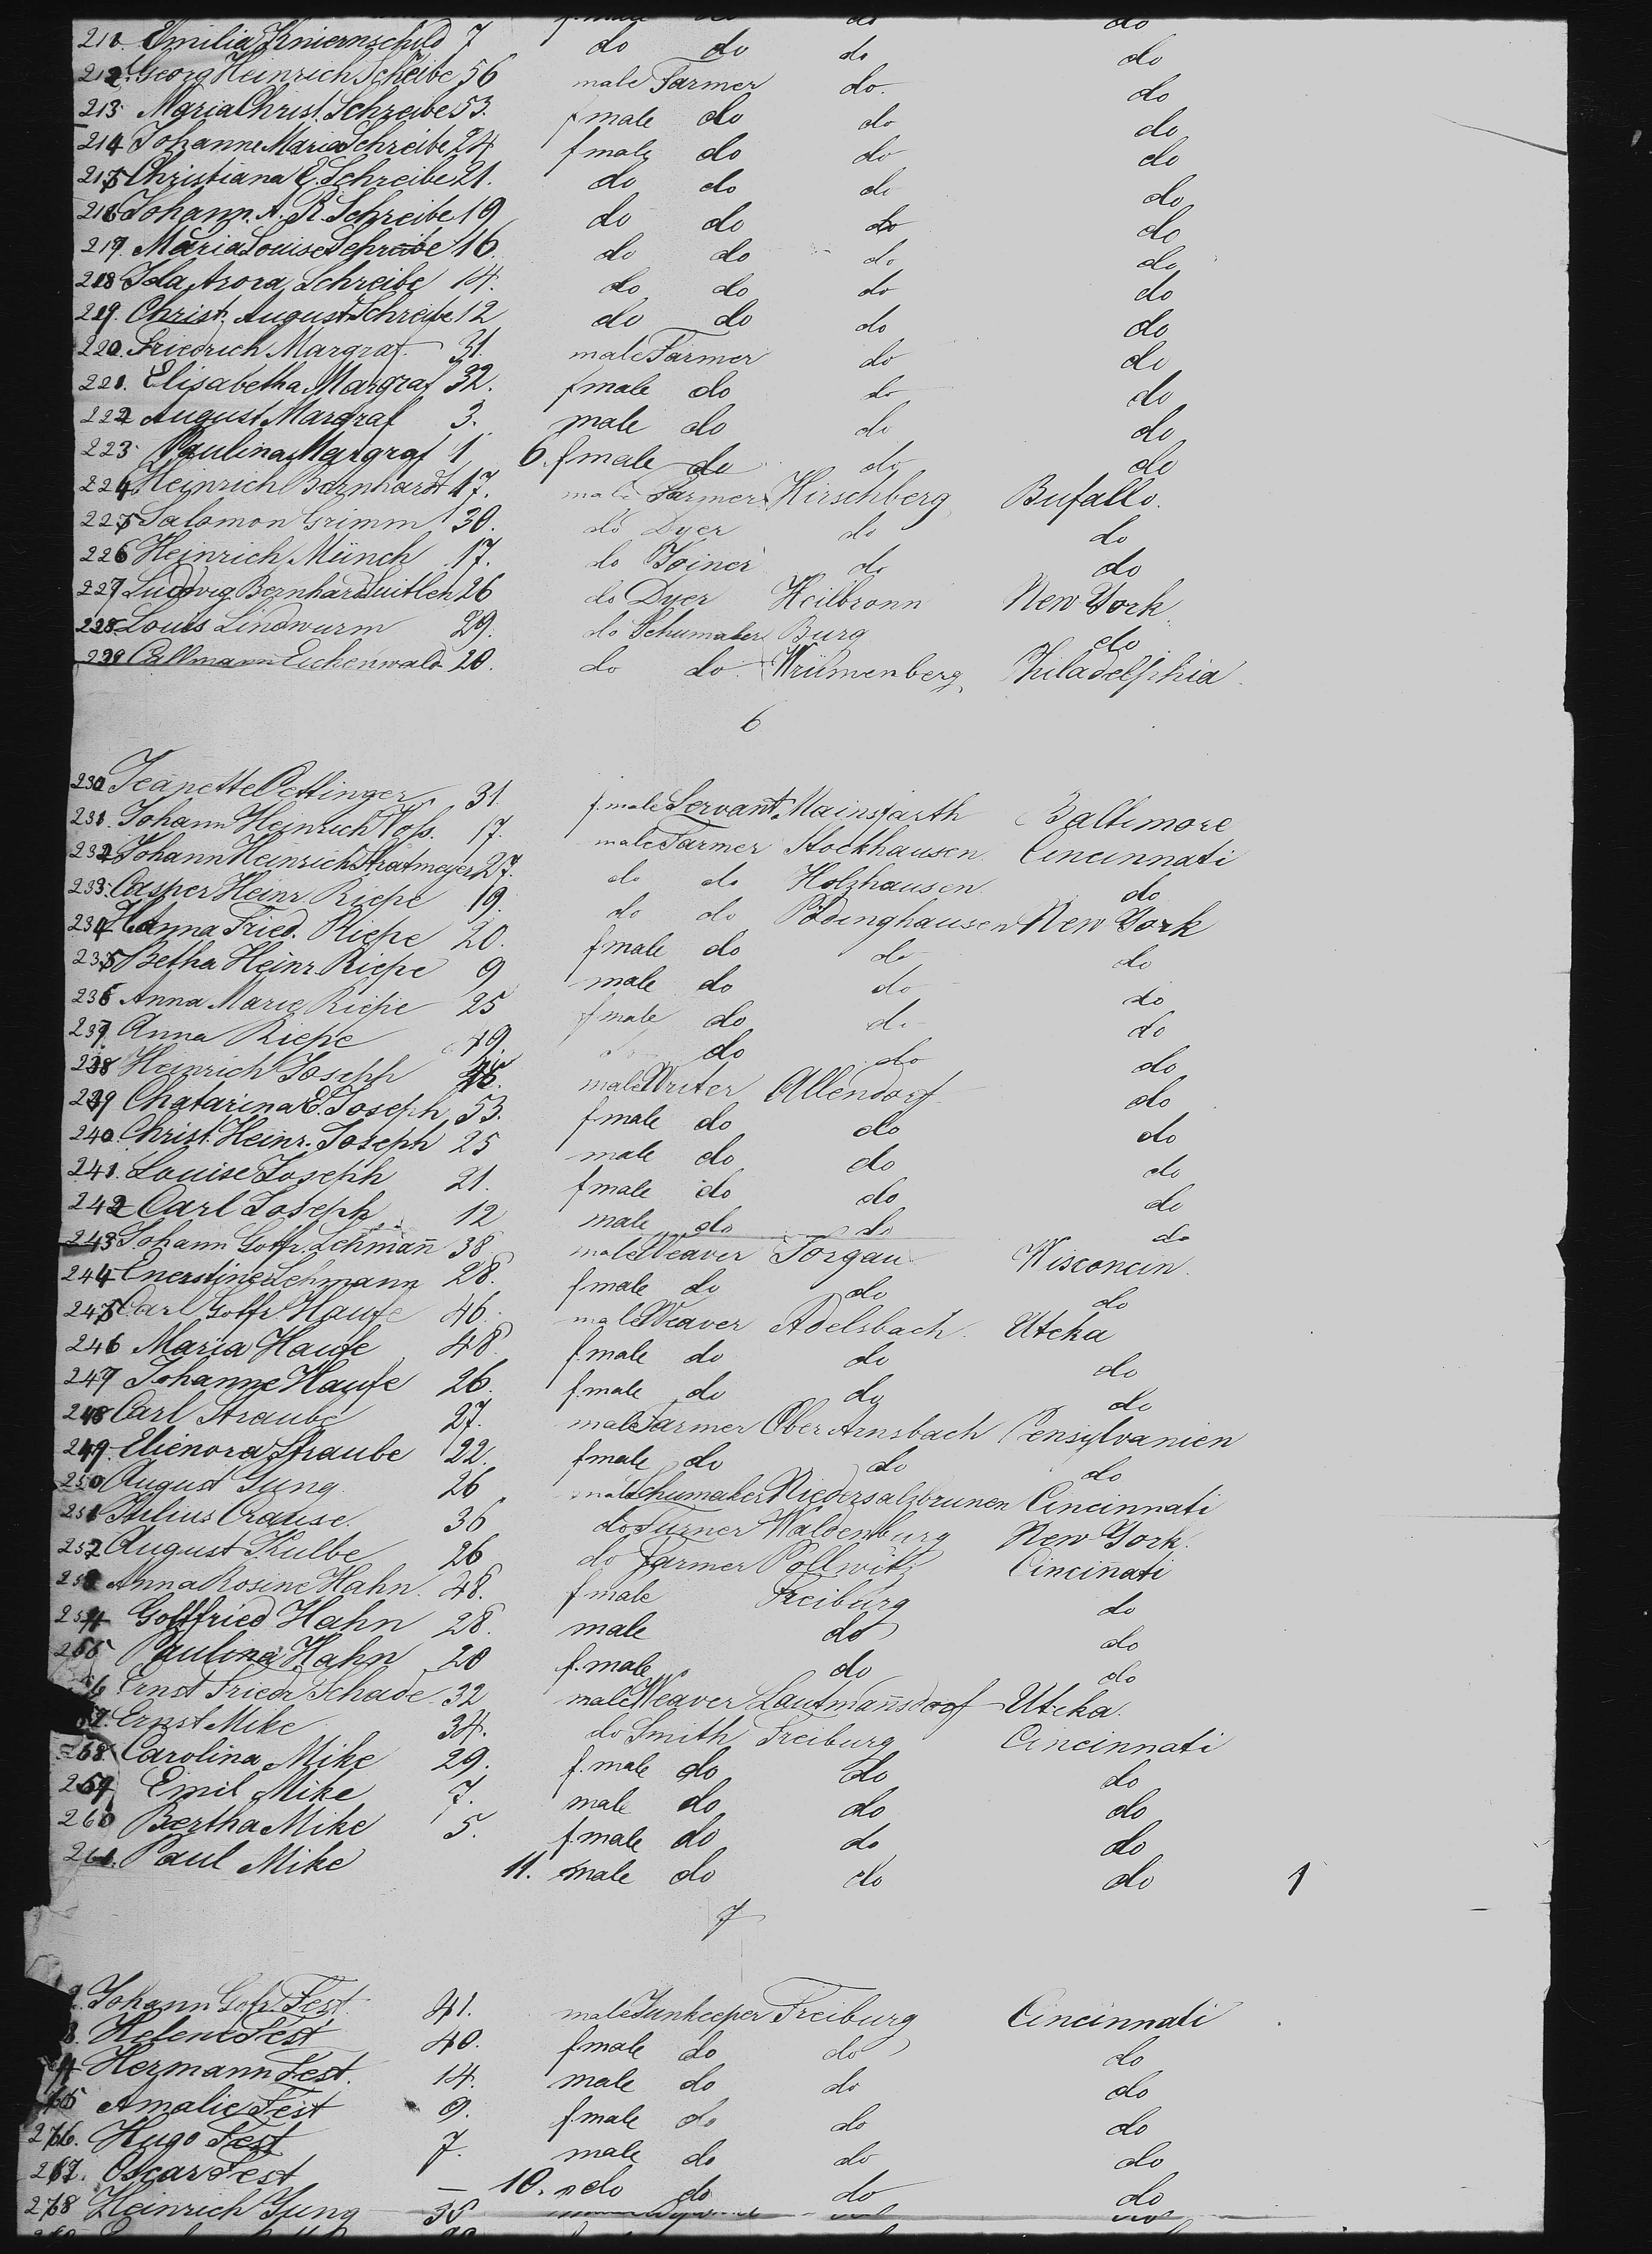 211. Emilia Kniernschild 7 do do do do
212. Georg Heinrich Scheibe 56 male Farmer do. do
213 Maria Christ. Schreibe 53. fmale do do do
214 Johanne Maria Schreibe 24 fmale do do do
215 Christiana E. Schreibe 21. do do do do
216 Johann. A. R. Schreibe 19 do do do do
217. Maria Louise Schreibe 16. do do do do
218 Ida Arora Schreibe 14. do do do do
219. Christ. August Schreibe 12 do do do do
220. Friedrich Margraf. 31. male Farmer do do
221. Elisabetha Margraf 32. fmale do do do
222 August Margraf 3. male do do do
223 Paulina Margraf 1 6. fmale do do do
224 Heinrich Barnhardt 17. male Farmer Hirschberg Bufallo.
225 Salomon Grimm 30. do Dyer do do
226 Heinrich Münch 17. do Joiner do do
227 Ludwig Bernhard 26 do Dyer Heilbronn New York
228 Louis Lindwurm 29. do Schumaker Burg do
229 Callmann Eickenwald 20. do do Philadelphia.
6
230 Jeanette Oettinger 31. f.male Servant Mainstarth Baltimore
231. Johann Heinrich Voss. 17. male Farmer Stockhausen Cincinnati
232 Johann Heinrich Stratmeyer 27. do do Holzhausen. do
233. Casper Heinr. Riepe 19. do do Pödinghausen New York
234 Hanna Fried. Riepe 20. fmale do do do
235 Betha Heinr. Riepe 9 male do do do
236 Anna Marie Riepe 25 fmale do do do
237 Anna Riepe 49. do do do do
238 Heinrich Joseph male Writer Allendorf do
239 Chatarina E. Joseph 53. fmale do do do
240. Christ. Heinr. Joseph 25 male do do do
241. Louise Joseph 21. fmale do do do
242 Carl Joseph 12 male do do do
243 Johann Gotfr. Lehmañ 38 male Weaver Torgau Wisconcin.
244 Enerstine Lehmann 28. fmale do do do
245 Carl Gotfr. Haufe 46. male Weaver Adelsbach. Uteka
246 Maria Haufe 48. fmale do do do
247 Johanne Haufe 26. f.male do do do
248 Carl Straube 27. male Farmer Ober Arnsbach Pensylvanien
249. Elienora Straube 22. fmale do do do
250 August Jung 26 male Schumaker Niedersalzbrunen Cincinnati
251 Julius Crause 36 do Turner Waldenburg New York.
252 August Kulbe 26 do Farmer Pollwitz Cinciñati
253 Anna Rosine Hahn. 48. fmale Freiburg do
254 Gottfried Hahn 28. male do do
255 Paulina Hahn 20 f.male do do
56 Ernst Friedr Schade 32 male Weaver Lautmañsdorf Uteka.
57. Ernst Mike 34. do Smith Freiburg Cincinnati
258 Carolina Mike 29. f.male do do do
259 Emil Mike 7. male do do do
260 Bertha Mike 5. f.male do do do
261. Paul Mike 11. male do do do 1
7
2. Johann Gofr. Fest. 41. male Junkeeper Freiburg Cincinnati
3. Helene Fest 40. fmale do do do
4 Hermann Fest. 14. male do do do
265 Amalie Fest 9. fmale do do do
266. Hugo Fest 7. male do do do
267. Oscar Fest – 10. do do do do
268 Heinrich Jung 35